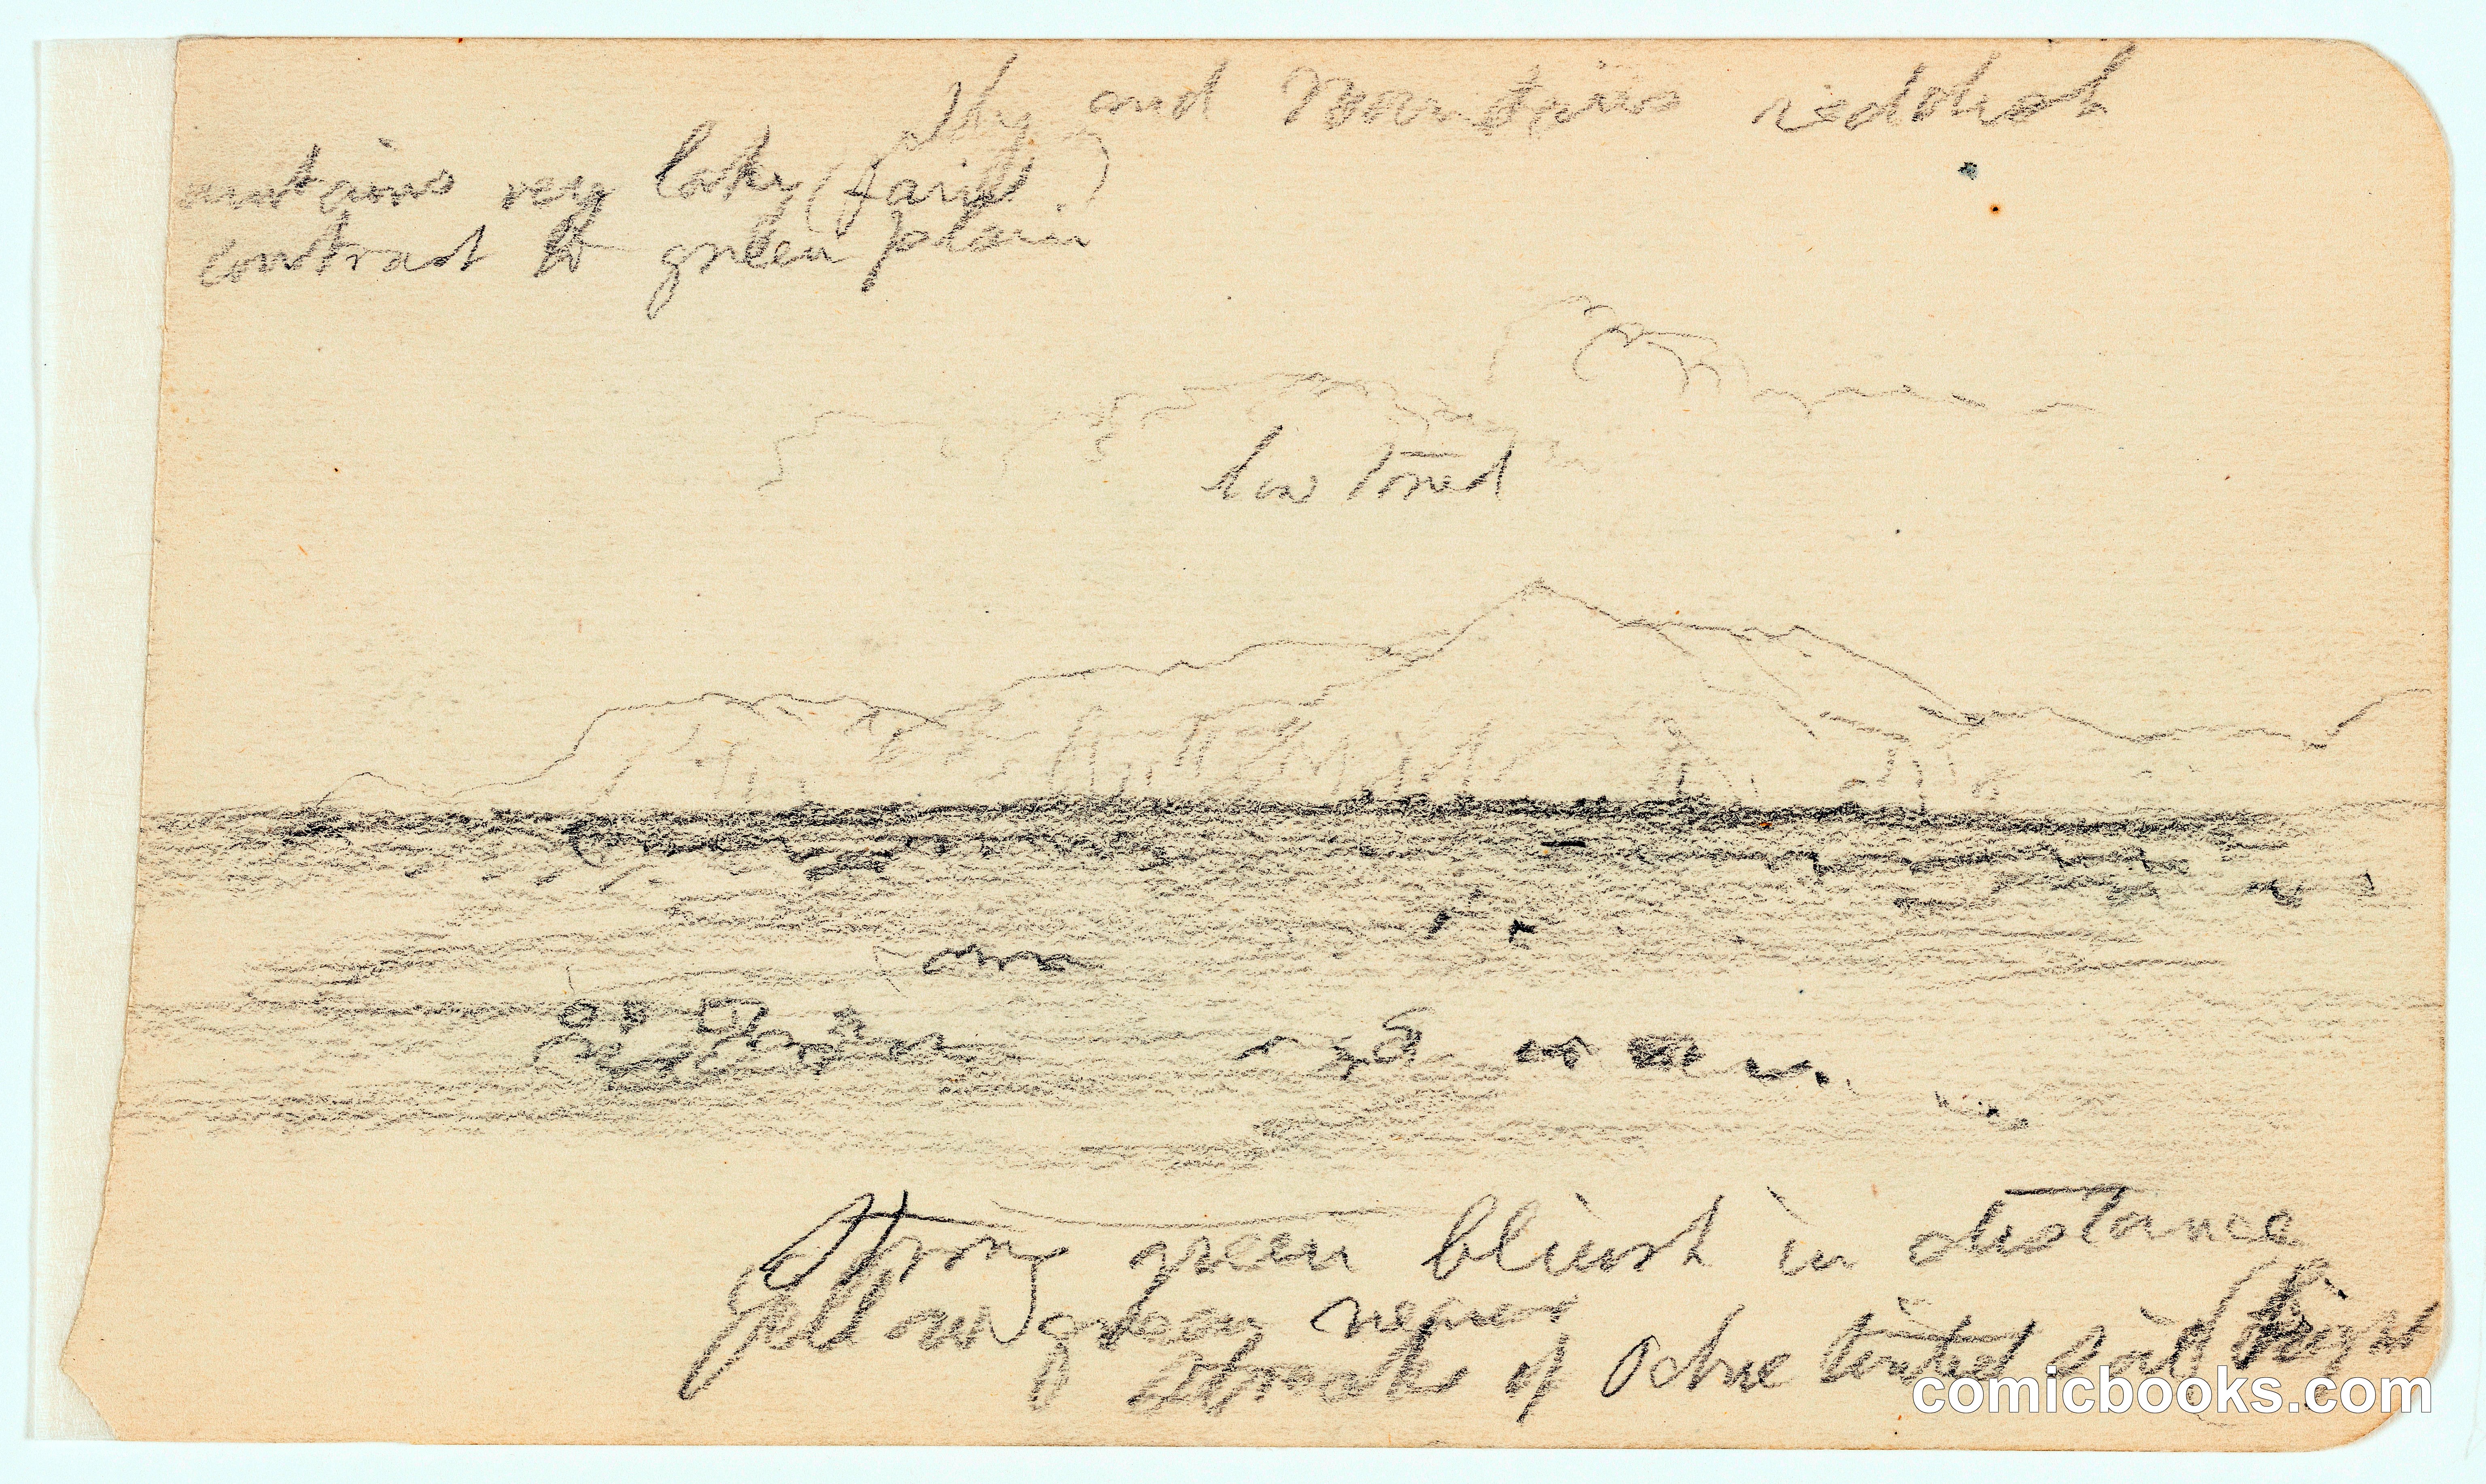 sky and Mountains reddish
mntains very laky (faint)
contrast to green plain
low toned
Strong green bluish in distance
yellow green nearer
Streaks of Ochre tinted soil bright
comicbooks.com